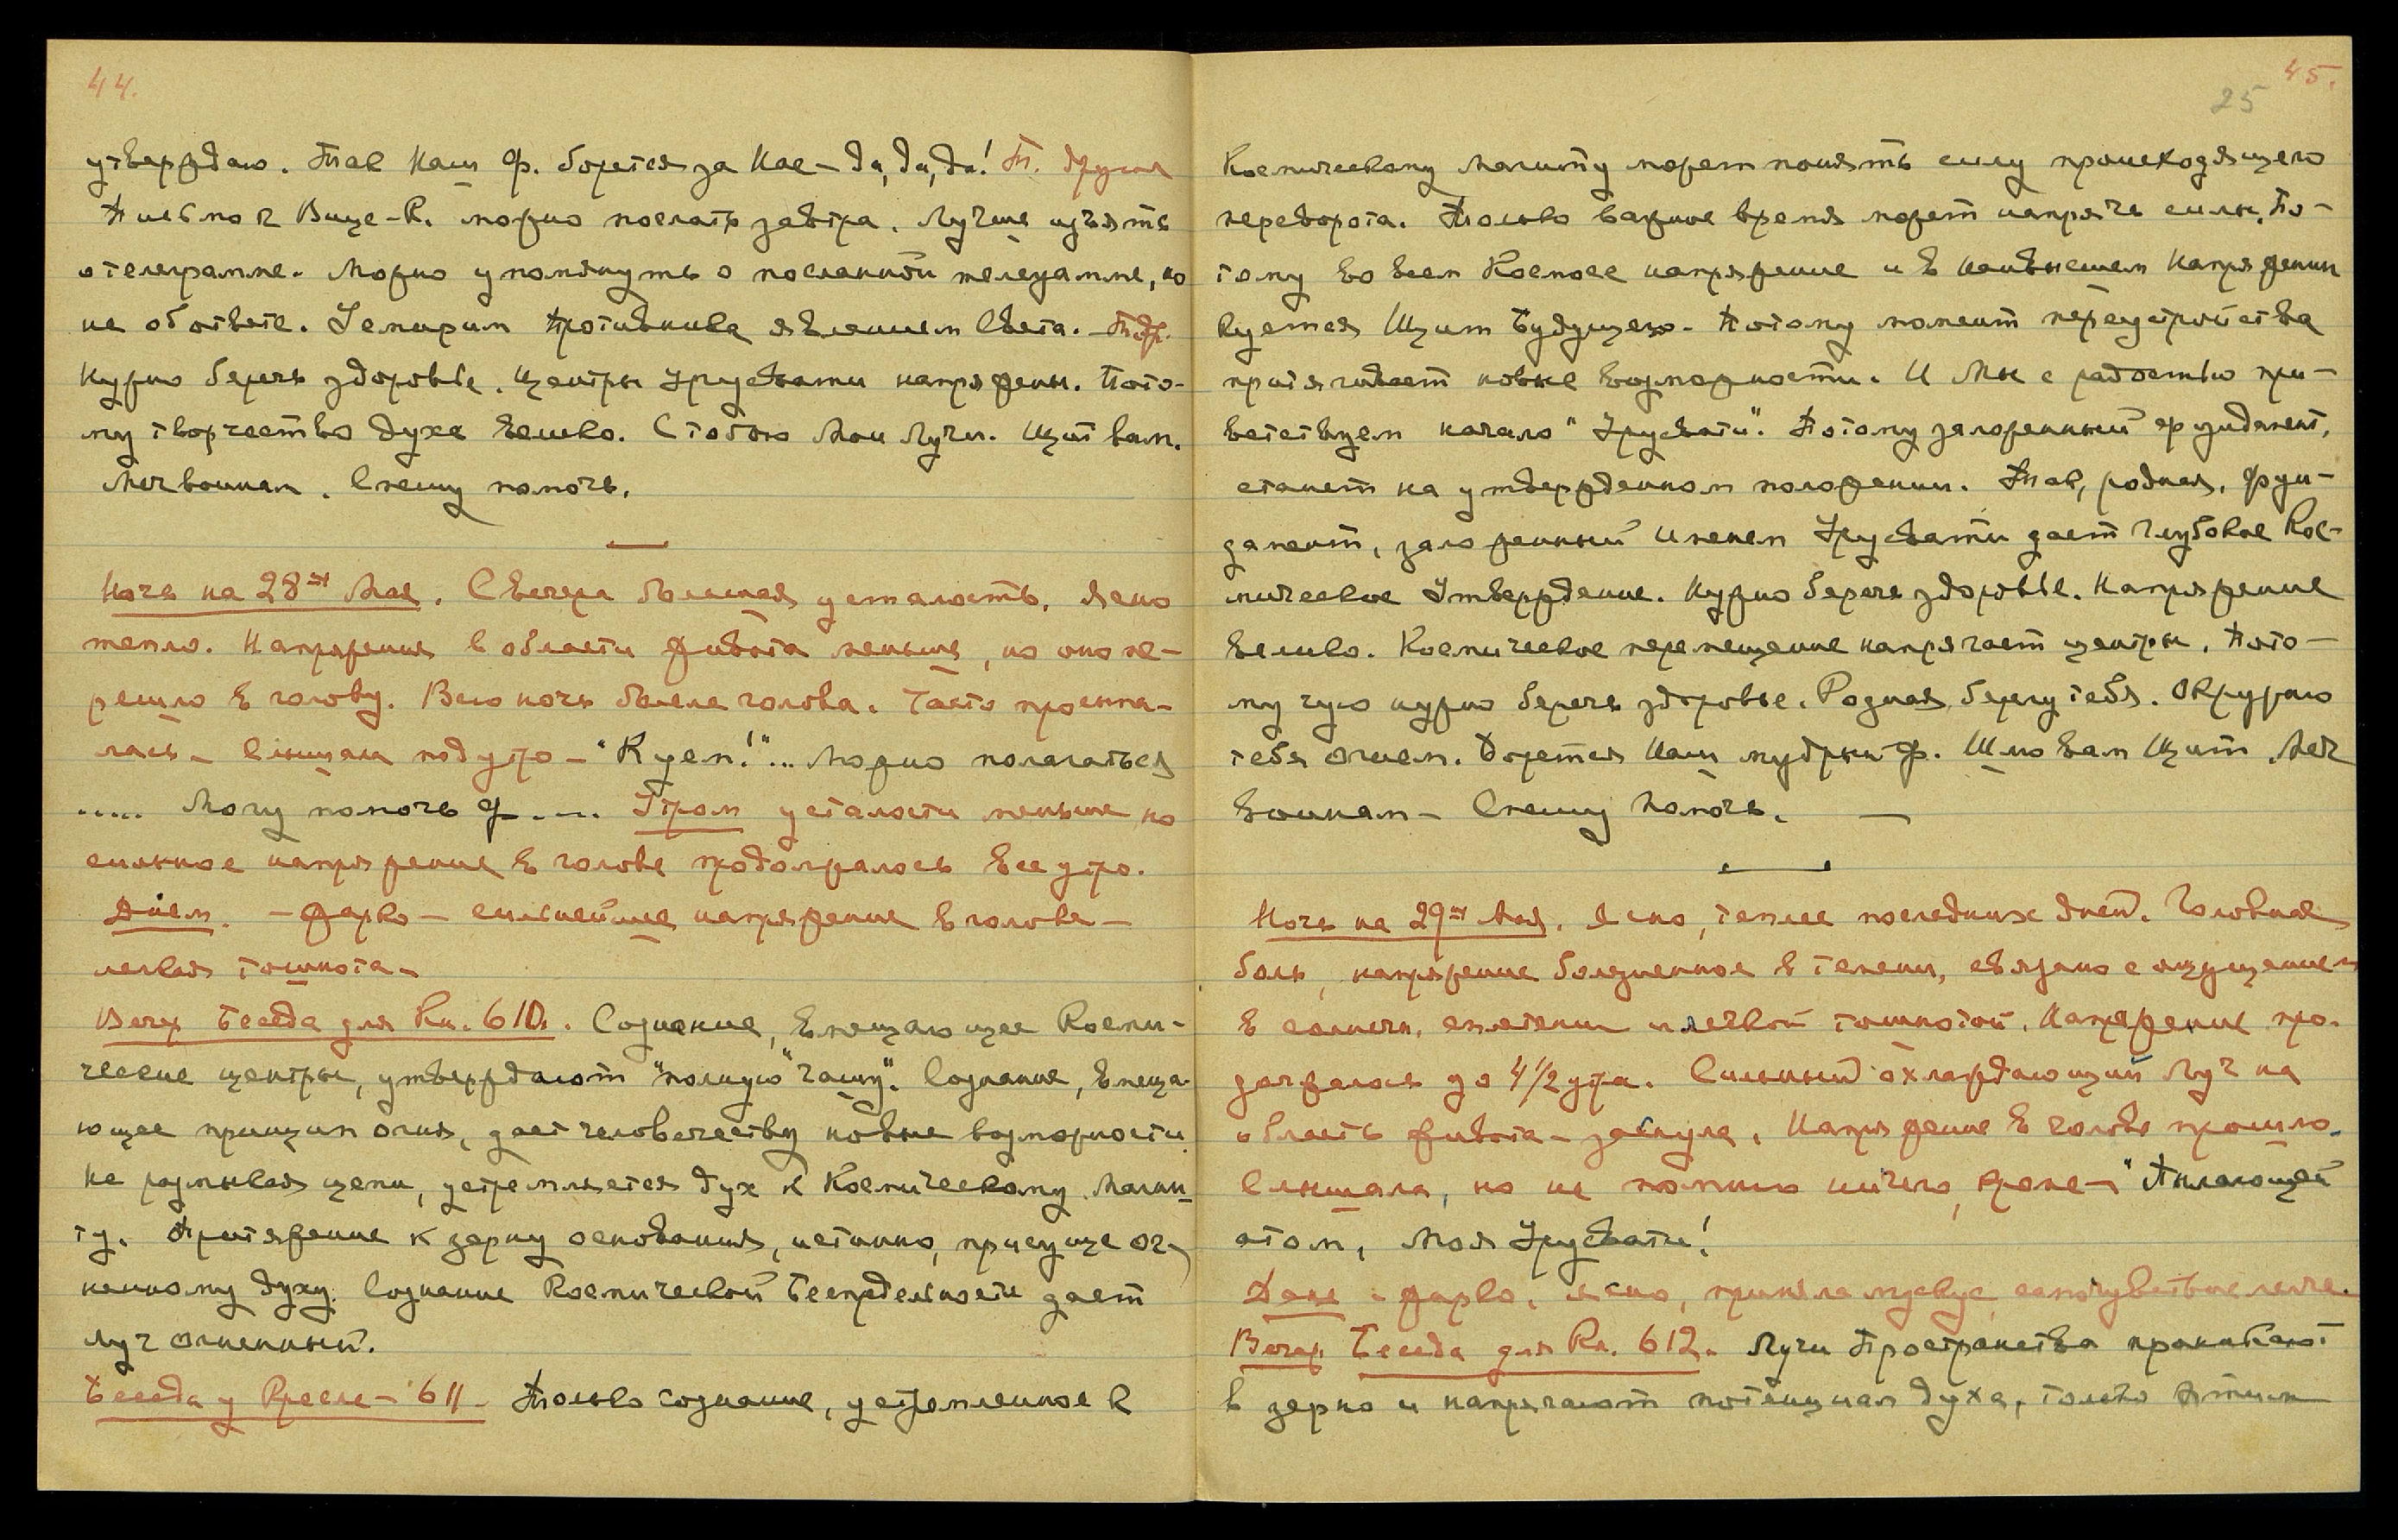 44.
утверждаю. Так Наш Ф. борется за Нас – да, да, да! Т. другая
Письмо к Вице-К. можно послать завтра. Лучше изъять
о телеграмме. Можно упомянуть о посланной телеграмме, но
не об ответе. Усмирим противника явлением Света.
Нужно беречь здоровье. Центры Урусвати напряжены. Пото-
му творчество духа велико. С тобою Мои Лучи. Щит вам.
Меч воинам. Спешу помочь.
Ночь на 28ое Мая. С вечера большая усталость. Ясно
тепло. Напряжения в области живота меньше, но оно пе-
решло в голову. Всю ночь болела голова. Часто просыпа-
лась – Слышала под утро – "Куем!"... Можно полагаться
..... Могу помочь Ф..... Утром усталости меньше но
сильное напряжение в голове продолжалось все утро.
Днем. – Жарко – сильнейшее напряжение в голове –
легкая тошнота –
Вечер Беседа для Кн. 610. Сознание, вмещающее Косми-
ческие центры, утверждают "полную" Чашу". Сознание, вмеща-
ющее принцип огня, дает человечеству новые возможности.
Не размыкая цепи, устремляется дух к Космическому Магни-
ту. Притяжение к зерну основания, истинно, присуще ог-
ненному духу. Сознание Космической Беспредельности дает
луч огненный.
Беседа у Кресла – 611 – Только сознание, устремленное к
45.
25
Космическому Магниту может понять силу происходящего
переворота. Только важное время может напрячь силы. По-
тому во всем Космосе напряжение и в наивысшем напряжении
куется Щит Будущего. Потому момент переустройства
притягивает новые возможности. И Мы с радостью при-
ветствуем начало "Урусвати". Потому заложенный фундамент,
станет на утвержденном положении. Так, родная, фун-
дамент, заложенный именем Урусвати дает глубокое Кос-
мическое Утверждение. Нужно беречь здоровье. Напряжение
велико. Космическое перемещение напрягает центры. Пото-
му чую нужно беречь здоровье. Родная, берегу тебя. Окружаю
тебя огнем. Борется Наш мудрый Ф. Шлю вам Щит. Меч
воинам – Спешу помочь. –
Ночь на 29ое Мая. Ясно, теплее последних дней. Головная
боль, напряжение болезненное в темени, связано с ощущением
в солнечн. сплетении и легкой тошнотой. Напряжение про-
должалось до 4 1/2 утра. Сильный охлаждающий Луч на
область живота – заснула. Напряжение в голове прошло.
Слышала, но не помню ничего, кроме – "Пылающей
атом, Моя Урусвати!
День – жарко, ясно, приняла мускус, самочувствие легче.
Вечер. Беседа для Кн. 612. Лучи Пространства проникают
в зерно и напрягают потенциал духа, только этим